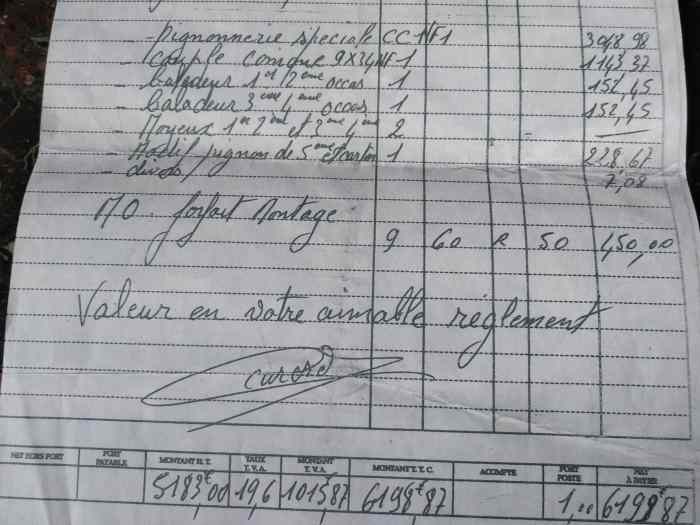 - Pignonnerie speciale CC NF1 3048,98
- Couple conique 9X34 NF 1 1143,37
- baladeur 1er 2eme occas 1 152,45
- baladeur 3eme 4eme occas 1 152,45
- Moyeux 1er 2eme et 3eme 4eme 2
- pignon de 5eme et carter 1 228,67
- divers 7,08
MO. forfait Montage
9 60 50 450,00
Valeur en votre aimable règlement
NET HORS PORT PORT PAYABLE MONTANT H.T. TAUX T.V.A. MONTANT T.V.A. MONTANT T.T.C. ACOMPTE PORT POSTE NET A PAYER
5183€00 19,6 1015€87 6198€87 1,00 6198€87